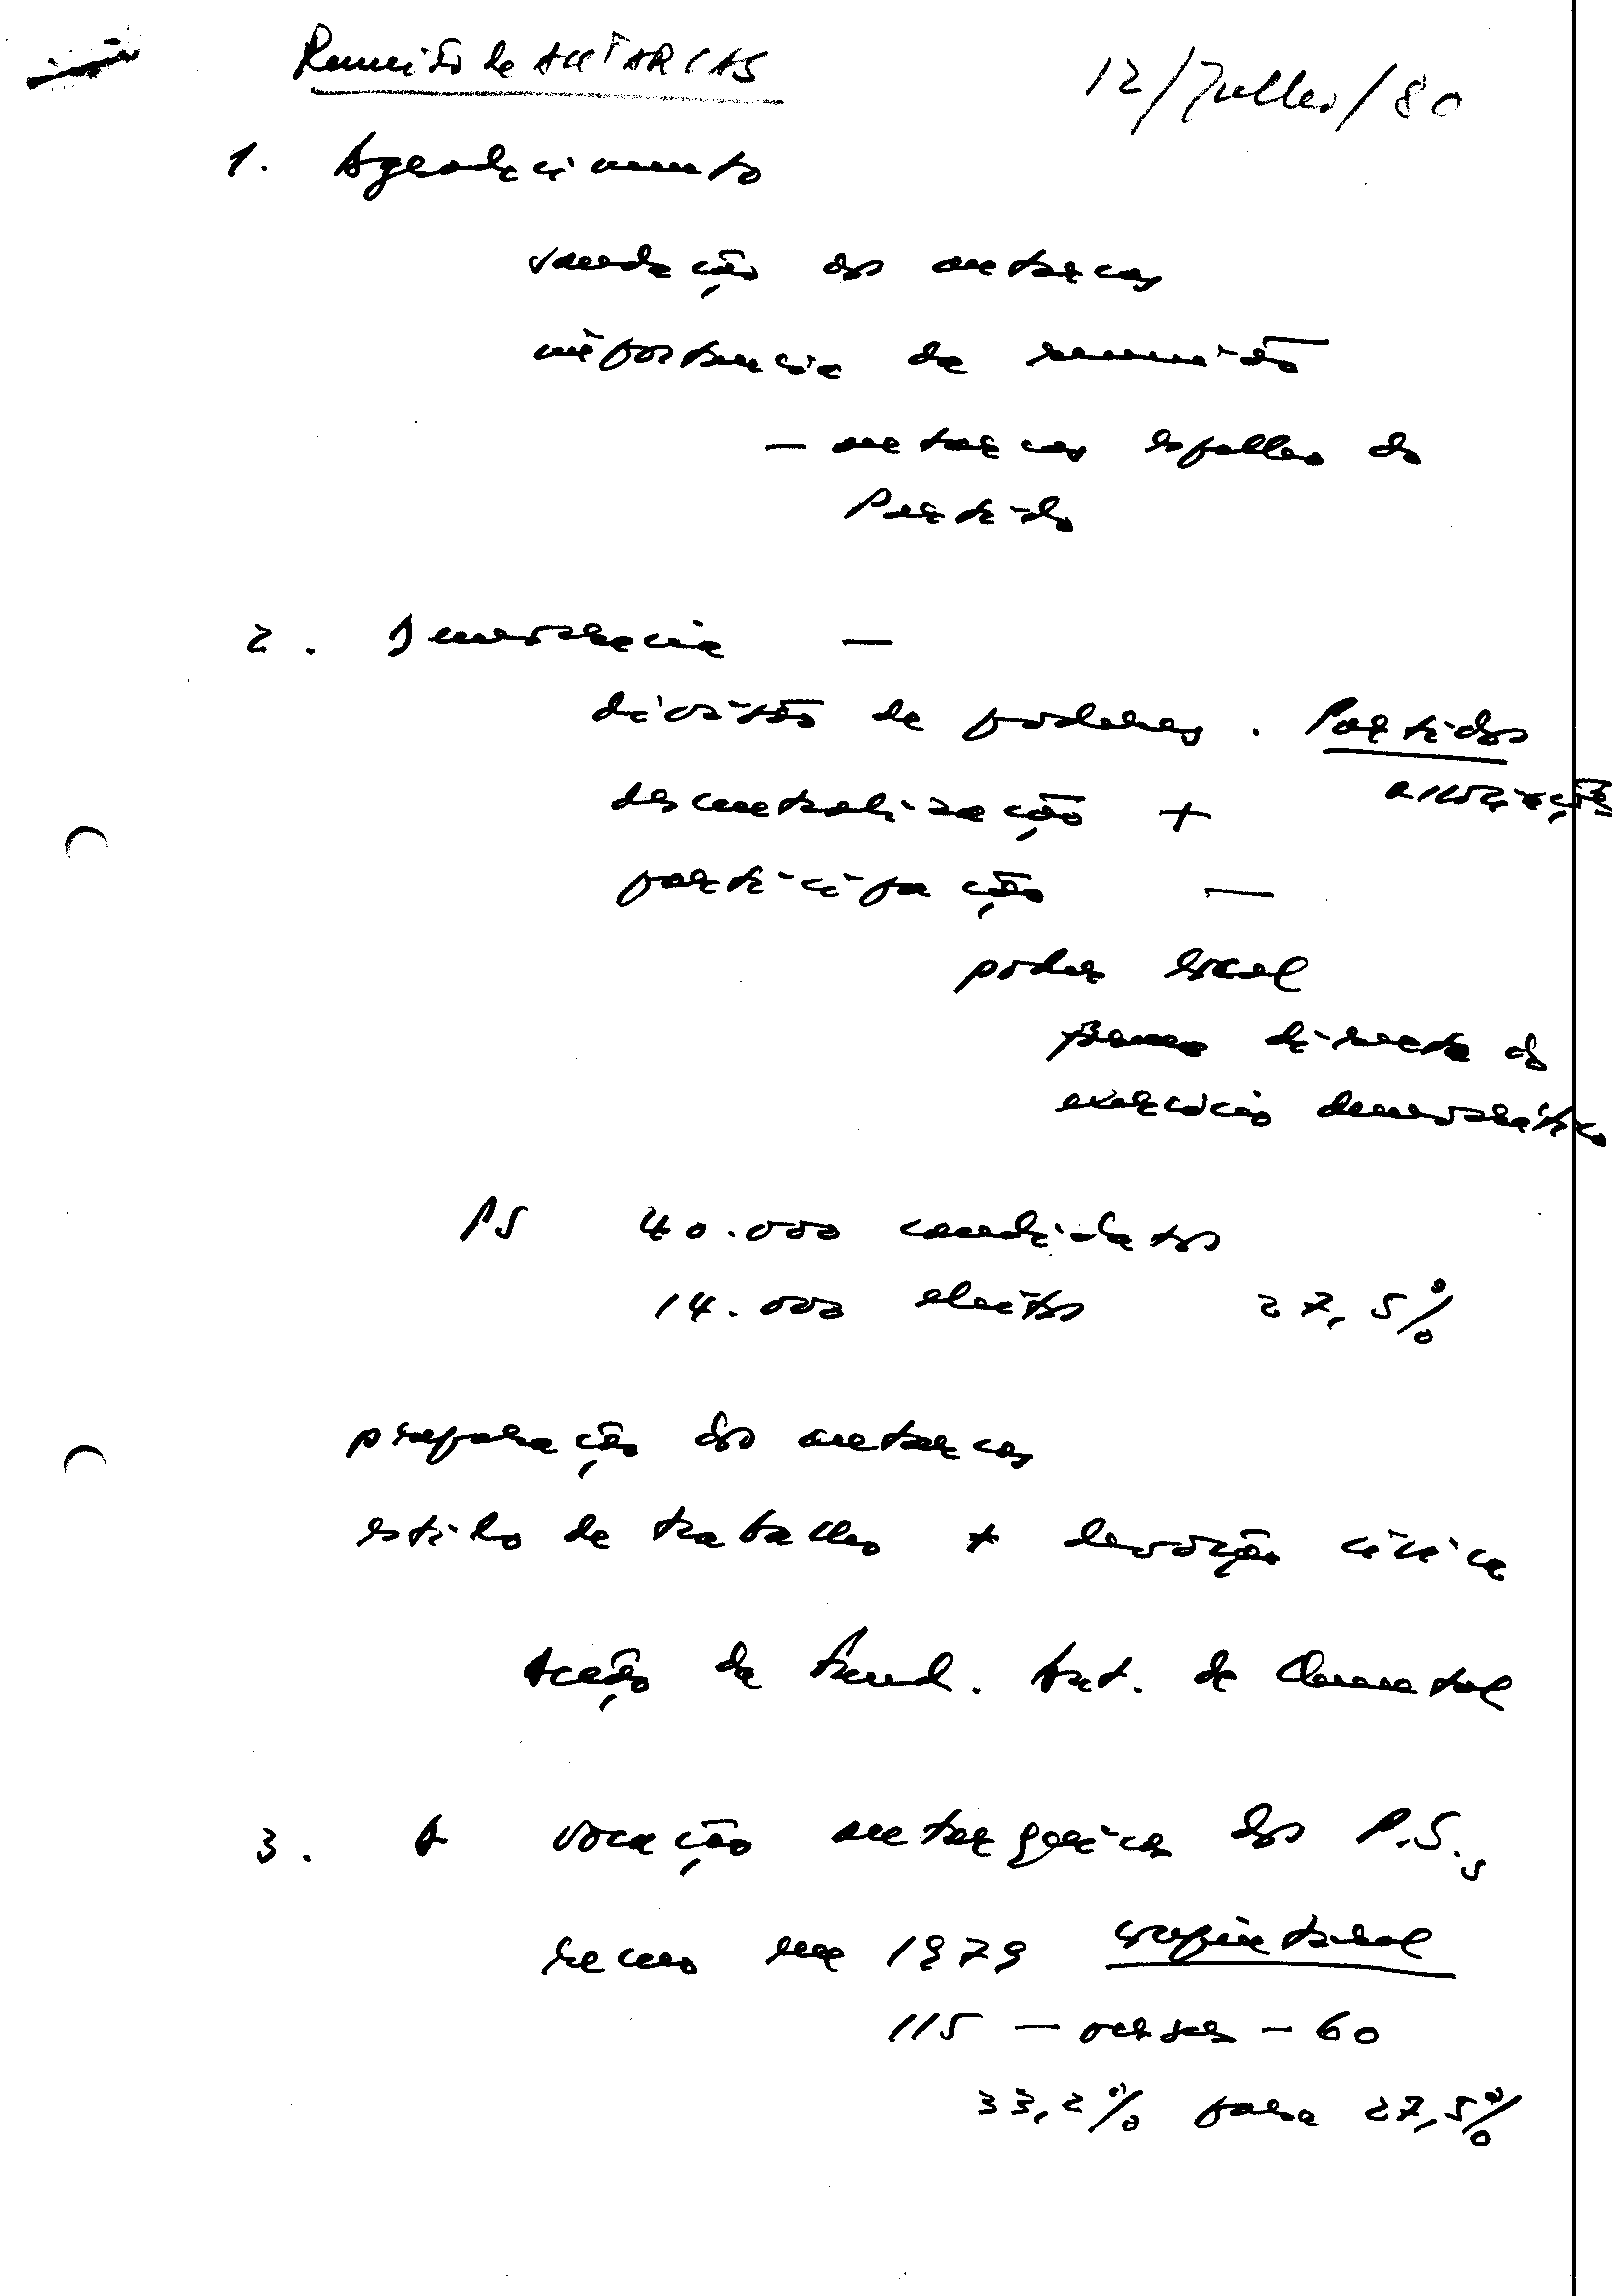 Reunião de AUTARCAS
12/Julho/80
1. Agradecimento
saudação aos autarcas
importância da reunião
— autarcas espelho do
Partido
2. Democracia —
divisão de poderes. Partidos
associações
descentralização +
participação —
poder local
forma directa do
exercício democrático
PS 40.000 candidatos
14.000 eleitos 27,5%
preparação dos autarcas
estilo de trabalho + devoção cívica
Acção da Fund. Ant. de Quental
3. A vocação autárquica dos P.S.s
recuo em 1979 conjuntural
115 — 60
33,2% para 27,5%